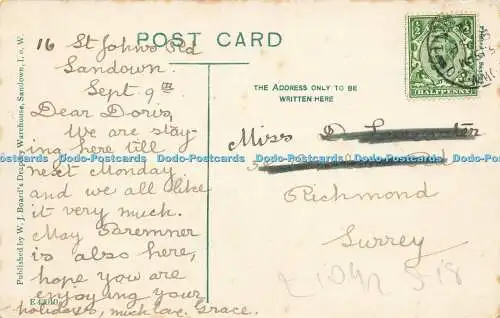 POST CARD
16 St Johns Rd
Sandown.
Sept 9th
Dear Doris,
We are stay-
ing here till
next Monday
and we all like
it very much.
May
is also here,
hope you are
enjoying your
holidays, much love. Grace.
THE ADDRESS ONLY TO BE
WRITTEN HERE
Miss D.
Richmond
Surrey
HALFPENNY
Published by W. J. Board's Drapery Warehouse, Sandown, I. o. W.
Dodo-Postcards Dodo-Postcards Dodo-Postcards Dodo-Postcards Dodo-Postcards Dodo-Postcards